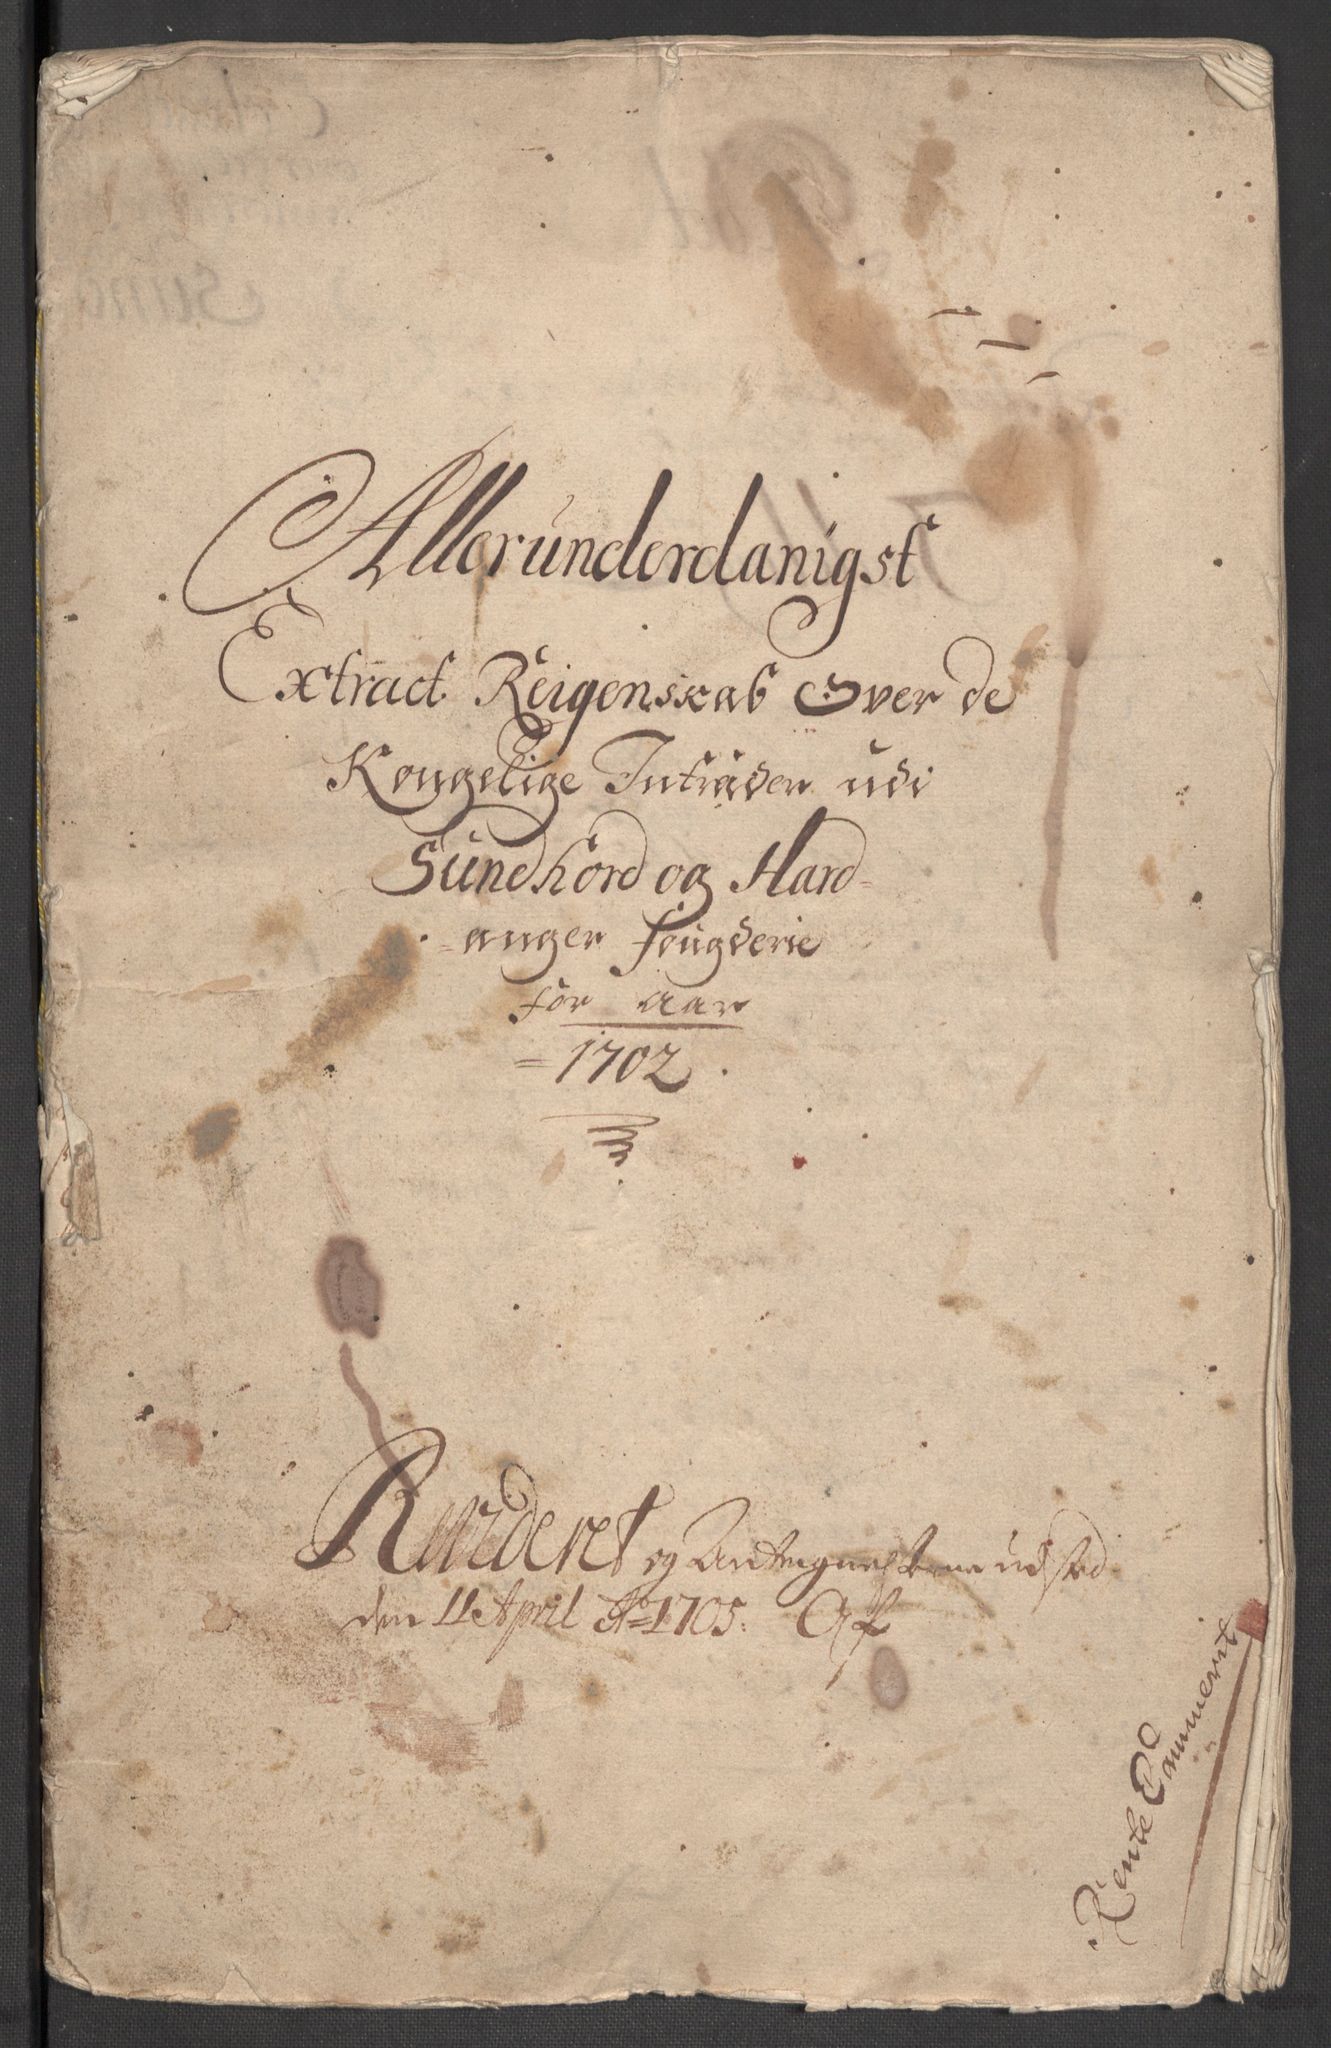 Allerunderdanigst
Extract Reigenskab Over de
Kongelige Intrader udi
Sundhord og Hard-
-anger fougderie
for aar
= 1702.
Revideret og Antegnelserne udsted
den 11 April Ao 1705. Af
Rente Cammeret